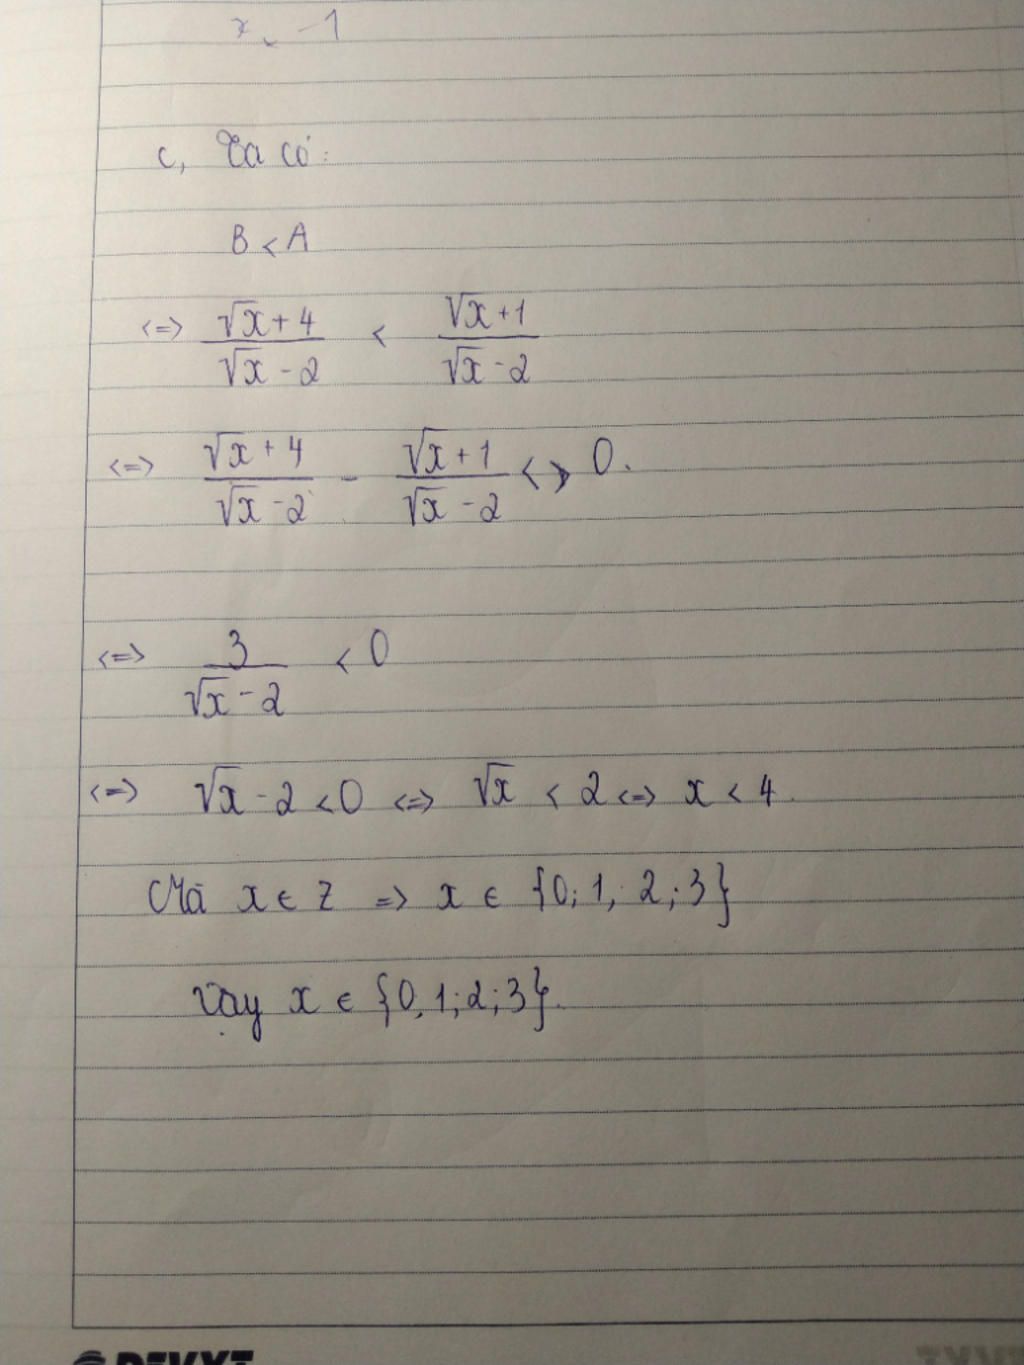 x - 1
c, Ta có:
B < A
<=> (√x + 4)/(√x - 2) < (√x + 1)/(√x - 2)
<=> (√x + 4)/(√x - 2) - (√x + 1)/(√x - 2) < 0.
<=> 3/(√x - 2) < 0
<=> √x - 2 < 0 <=> √x < 2 <=> x < 4.
Mà x ∈ Z => x ∈ {0; 1; 2; 3}
Vậy x ∈ {0, 1; 2; 3}.